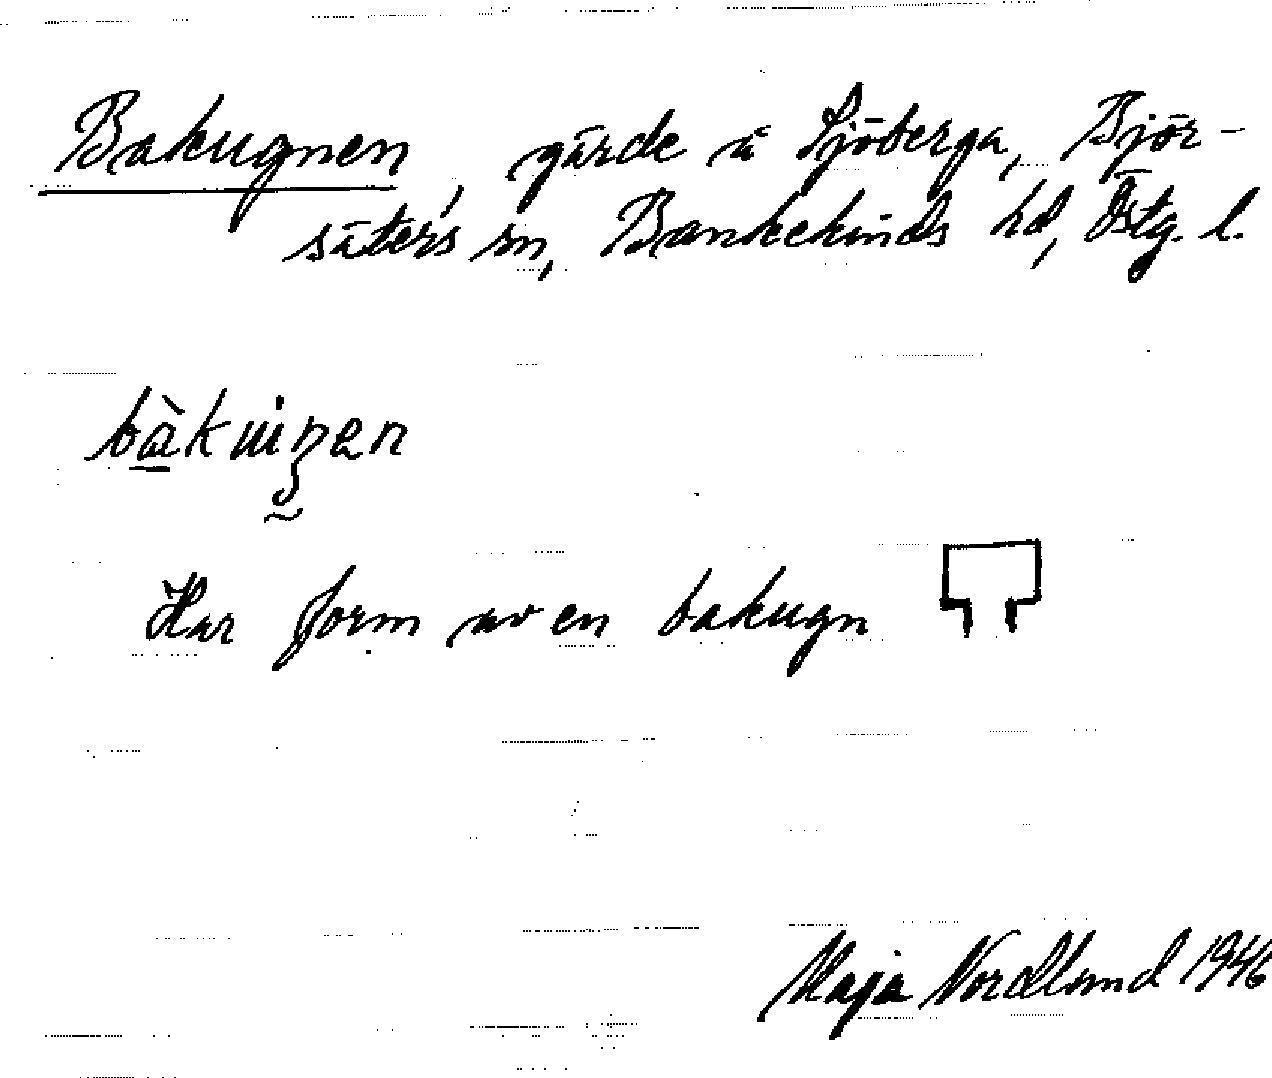 Bakugnen, gärde å Sjöberga, Björ-
säters sn, Bankekinds hd, Östg. l.
Har form av en bakugn
Maja Nordlund 1946